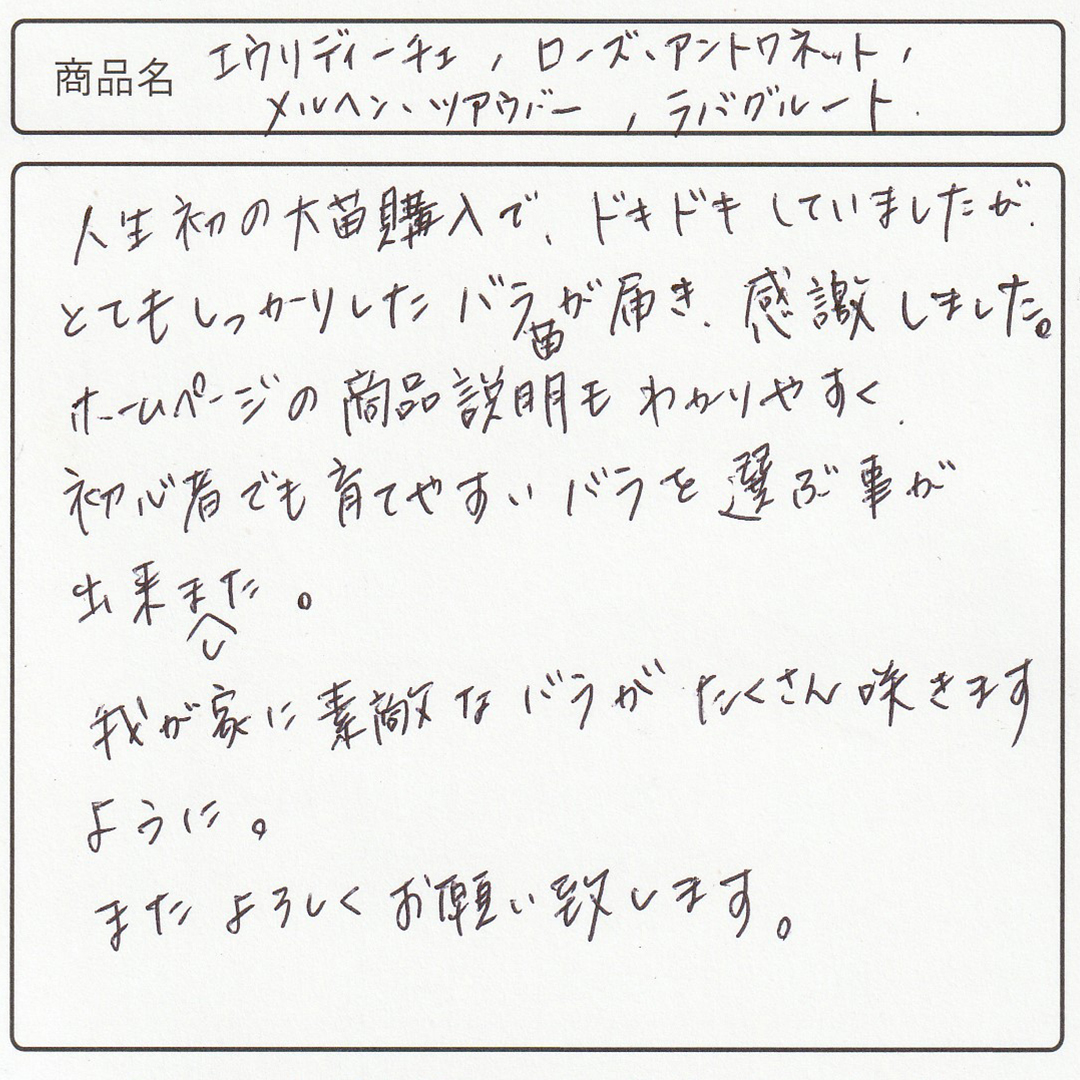 商品名 エウリディーチェ，ローズ・アントワネット，
メルヘン・ツアウバー，ラバグルート．
人生初の大苗購入で、ドキドキしていましたが、
とてもしっかりしたバラ苗が届き、感激しました。
ホームページの商品説明もわかりやすく、
初心者でも育てやすいバラを選ぶ事が
出来ました。
我が家に素敵なバラがたくさん咲きます
ように。
またよろしくお願い致します。